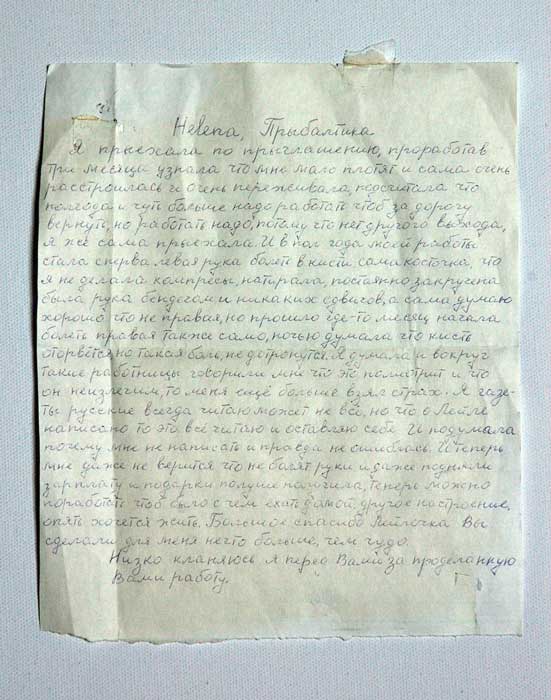 Helena, Прыбалтика
Я прыехала по прыглашению, проработав
три месяцы узнала что мне мало плотят и сама очень
расстроилась и очень пережывала, подсчитала что
полгода и чуть больше надо работать чтоб за дорогу
вернуть, но работать надо, потому что нет другого выхода,
я же сама прыехала. И в пол года моей работы
стала сперва левая рука болеть в кисти сама косточка, что
я не делала компресы, натирала, постаянно закручена
была рука бендегом и никаких сдвигов, а сама думаю
хорошо что не правая, но прошло где-то месяц начала
болеть правая также само, ночью думала что кисть
оторвётся, но такая боль, не дотронутся. Я думала и вокруг
такие работницы говорили мне что это полиатрит и что
он неизлечим, то меня ещё больше взял страх. Я газе-
ты русские всегда читаю может не все, но что о Лейле
написано то это всё читаю и оставляю себе. И подумала
почему мне не написать и правда не ошиблась. И теперь
мне даже не верится что не болят руки и даже подняли
зарплату и подарки получше получила, теперь можно
поработать чтоб было с чем ехать домой, другое настроение,
опять хочется жить. Большое спасибо Лейлечка Вы
сделали для меня нечто больше, чем чудо.
Низко кланяюсь я перед Вами за проделанную
Вами работу.